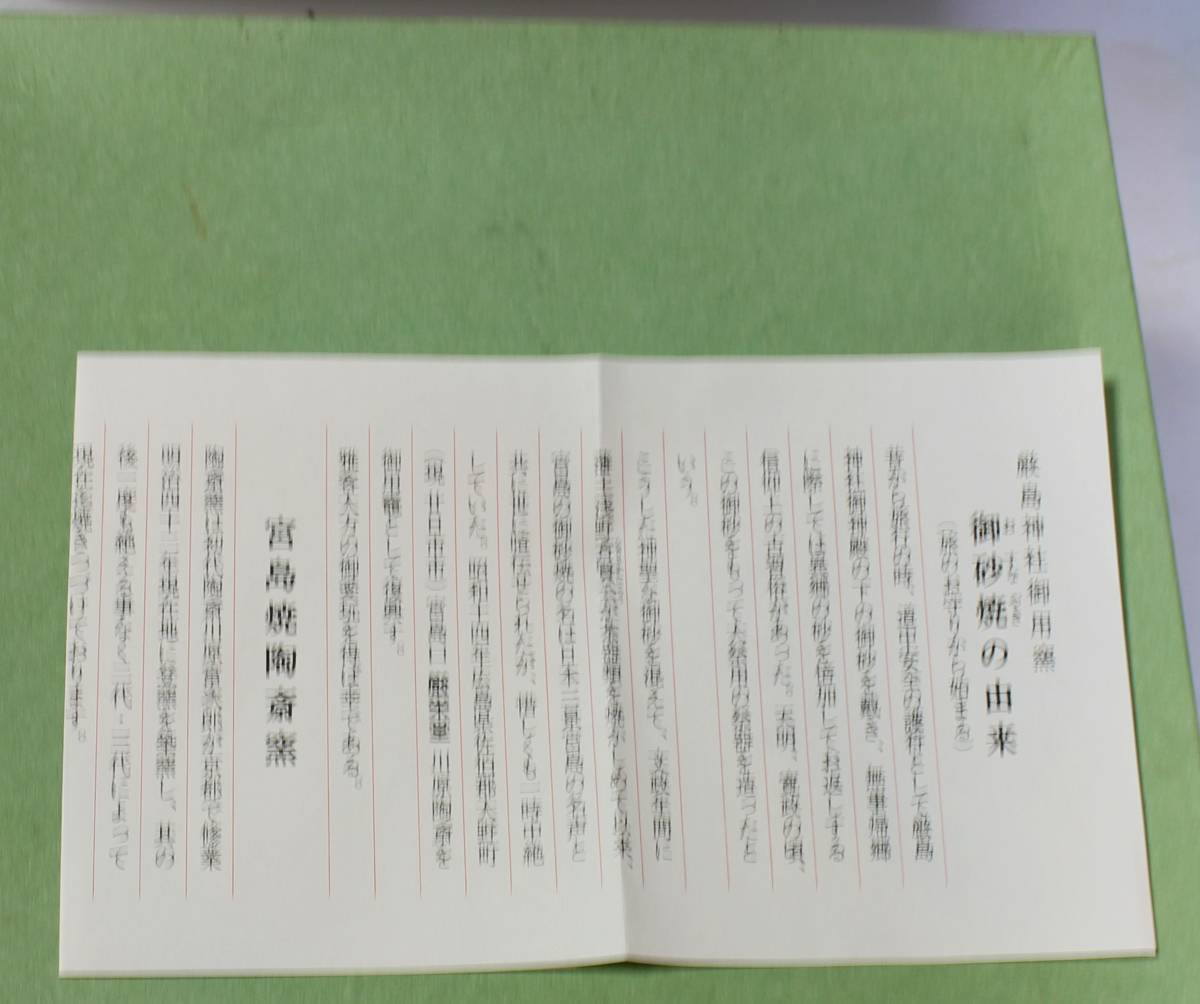 厳島神社御用窯
御砂焼の由来
おすなやき
(旅のお守りから始まる)
昔から旅行の時、道中安全の護符として厳島
神社御神殿の下の御砂を戴き、無事帰郷
に際しては異郷の砂を倍加してお返しする
信仰上の古習俗があった。天明、寛政の頃、
この御砂をもって大祭用の祭器を造ったと
いう。
こうした神聖な御砂を混えて、文政年間に
藩主浅野斉賢公が茶器類を焼かしめて以来、
宮島の御砂焼の名は日本三景宮島の名声と
共に世に喧伝せられたが、惜しくも一時中絶
していた。昭和十四年広島県佐伯郡大野町
(現 廿日市市)宮島口 川原陶斎を
御用竈として復興す。
雅客大方の御愛玩を得ば幸である。
宮島焼陶斎窯
陶斎窯は初代陶斎川原富次郎が京都で修業
明治四十二年現在地に登窯を築窯し、其の
後一度も絶える事なく二代・三代によって
現在迄焼きつづけております。